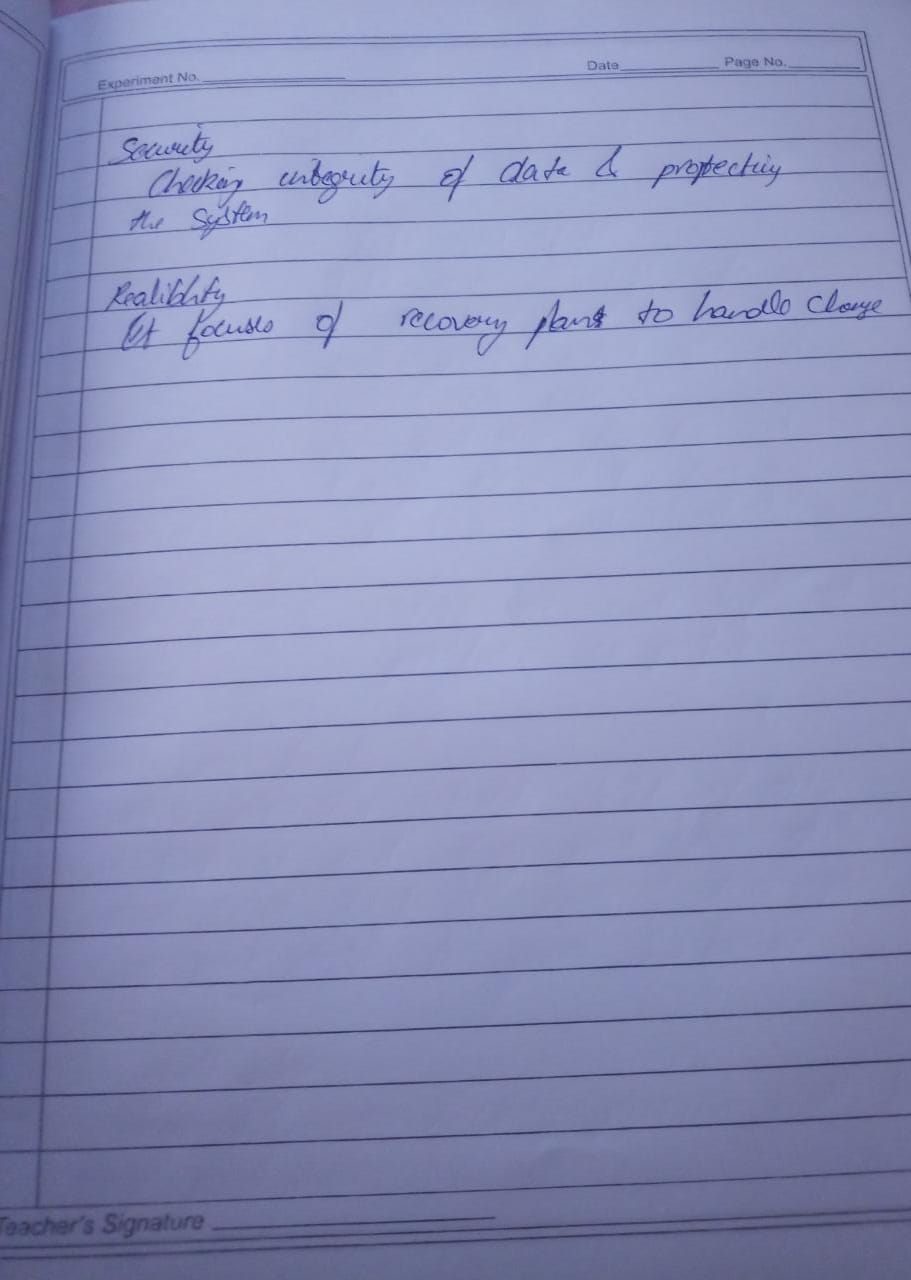 Experiment No.
Date Page No.
Security
Checking integrity of data & protecting
the System
Realiblity
It focuses of recovery plans to handle change
Teacher's Signature